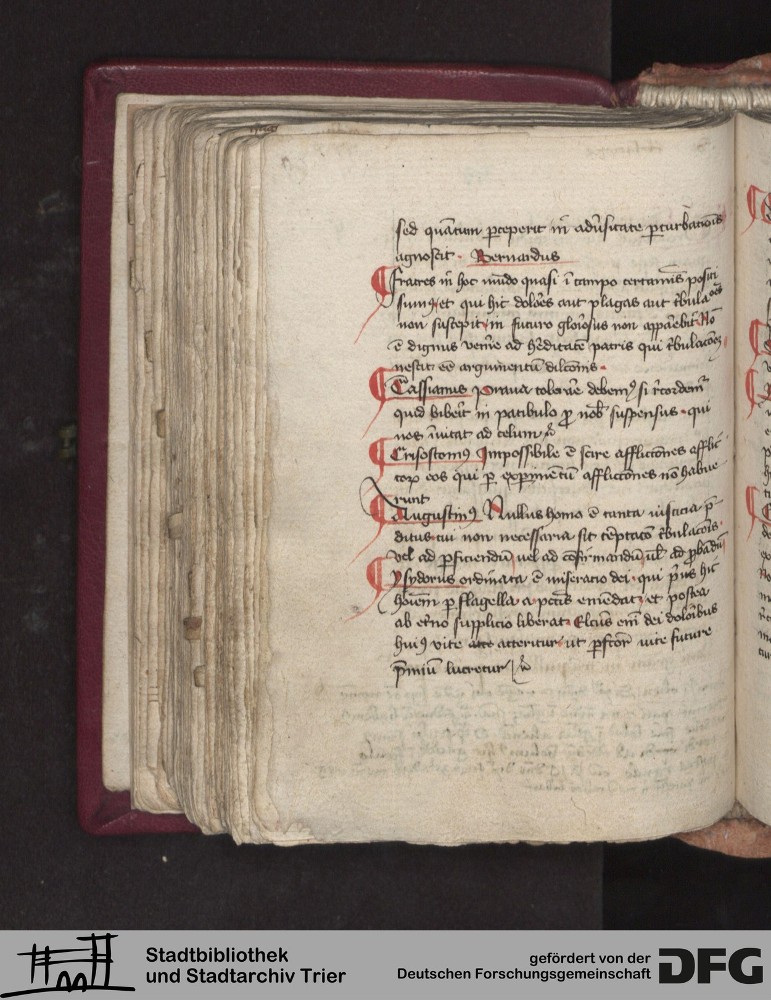 sed quātum pceperit in adūsitate pturbatiōis
agnoscit · Bernardus
Fratres in hoc mūdo quasi ī campo certamīs positi
sumꝰ et qui hic dolores aut plagas aut tbulaoēs
non sustepit in futuro gloīosus non appāebit Nō
ē dignus venire ad hēditatē patris qui tbulacōeꝫ
nescit eē argumentū dilcōnis ·
Cassianus praua tolerare debemꝰ si rcordemr
quid biberit in patibulo p nob suspensus · qui
nos īuitat ad celum
Crisostomꝰ Impossibile ē scire afflictōnes afflic
torꝝ eos qui p expimētū afflictōnes nō habue
runt
Augustinꝰ Nullus homo ē tanta iusticia p̄
ditus cui non necessaria sit tēptatō tbulacōis
vel ad pficiendū uel ad cōfirmandū ul ad pbādū
Ysydorus ordinata ē miseracio dei · qui pius hic
hoīem p flagella a pctīs emēdat · et postea
ab etno supplicio liberat · Elcūs enī dei doloibus
huiꝰ vite atte atteritur ut pfctor uite future
p̄miū lucretur
Stadtbibliothek
und Stadtarchiv Trier
gefördert von der
Deutschen Forschungsgemeinschaft
DFG